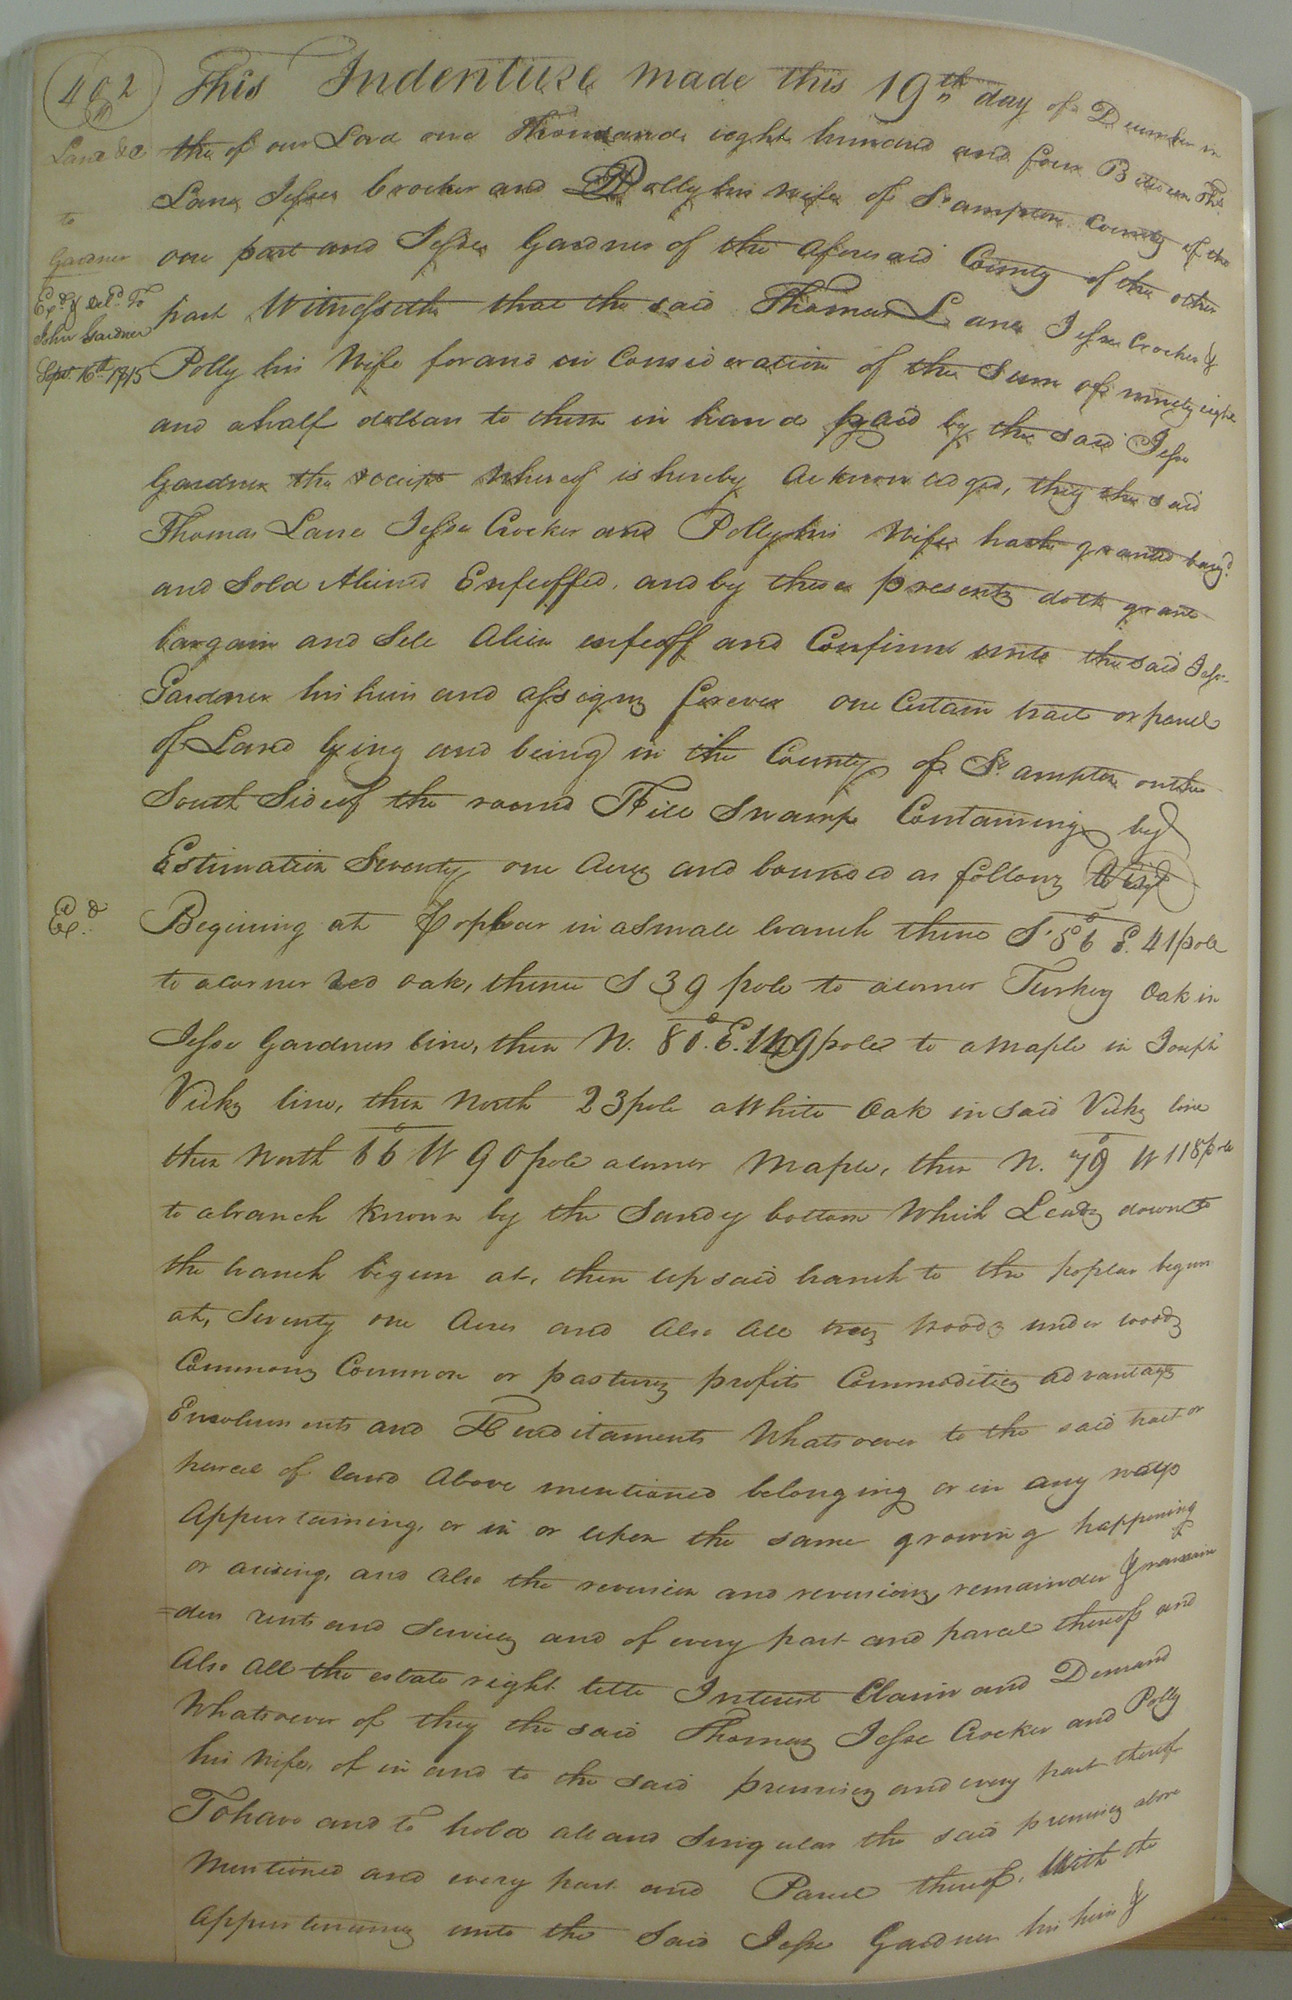 402
This Indenture made this 19th day of December in
the of our Lord one Thousand eight hundred and four Between Ths
Lane Jesse Crocker and Polly his wife of So ampton County of the
one part and Jesse Gardner of the aforesaid County of the other
part Witnesseth that the said Thomas Lane Jesse Crocker &
Polly his Wife for and in Consideration of the Sum of ninety eight
and a half dollars to them in hand paid by the said Jesse
Gardner the receipt whereof is hereby acknowledged, they the said
Thomas Lane Jesse Crocker and Polly his Wife hath granted barg.d
and Sold Aliened Enfeoffed, and by these presents doth grant
bargain and Sell Alien enfeoff and Confirm unto the said Jesse
Gardner his heirs and assigns forever one Certain tract or parcel
of Land lying and being in the County of So ampton on the
South Side of the round Hill Swamp Containing by
Estimation Seventy one Acres and bounded as follows
Begining at a poplar in a small branch thence S. 56 E. 41 pole
to a corner red oak, thence S 39 pole to a corner Turkey Oak in
Jesse Gardners line, then N. 80. E. 149 poles to a maple in Joseph
Vicks line, then North 23 pole a White Oak in said Vicks line
then North 66 W 90 pole a corner maple, then N. 79 W 118 pole
to a branch known by the Sandy bottom Which Leads down to
the branch begun at, then up said branch to the poplar begun
at, Seventy one Acres and also all trees woods under woods
Commons Common or pastures profits Commodities advantages
Emoluments and Hereditaments Whatsoever to the said tract or
parcel of land Above mentioned belonging or in any ways
Appurtaining, or in or upon the same growing happening
or arising, and also the revercion and revercions, remainder & remain
=ders rents and Services and of every part and parcel thereof and
Also All the estate right title Interest Claim and Demand
Whatsoever of they the said Thomas Jesse Crocker and Polly
his Wife, of in and to the said premises and every part thereof
To have and to hold all and Singular the said premises above
Mentioned and every part and Parcel thereof, With the
Appurtenances unto the Said Jesse Gardner his heirs &
Lane &c
to
Gardner
Ex.d & del.d To
John Gardner
Sept. 16th 1815
Ex.d